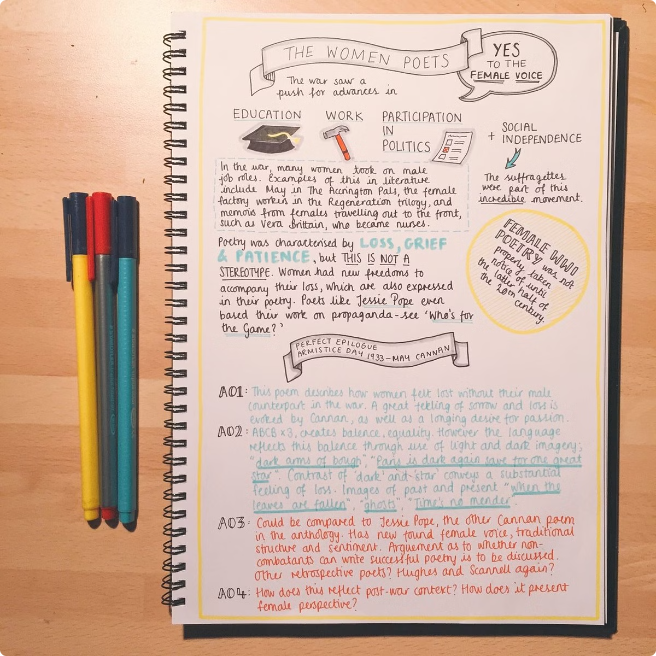 THE WOMEN POETS
YES
TO THE
FEMALE VOICE
The war saw a
push for advances in
EDUCATION
WORK
PARTICIPATION
IN
POLITICS
+ SOCIAL
INDEPENDENCE
The suffragettes
were part of this
incredible movement.
In the war, many women took on male
job roles. Examples of this in literature
include May in The Accrington Pals, the female
factory workers in the Regeneration trilogy, and
memoirs from females travelling out to the front,
such as Vera Brittain, who became nurses.
Poetry was characterised by LOSS, GRIEF
& PATIENCE, but THIS IS NOT A
STEREOTYPE. Women had new freedoms to
accompany their loss, which are also expressed
in their poetry. Poets like Jessie Pope even
based their work on propaganda-see 'Who's for
the Game?'
FEMALE WW1
POETRY was not
properly taken
notice of until
the latter half of
the 20th century.
PERFECT EPILOGUE
ARMISTICE DAY 1933-MAY CANNAN
AO1: This poem describes how women felt lost without their male
counterpart in the war. A great feeling of sorrow and loss is
evoked by Cannan, as well as a longing desire for passion.
AO2: ABCB x 3, creates balence, equality. However the language
reflects this balance through use of light and dark imagery;
"dark arms of bough", "Paris is dark again save for one great
star". Contrast of 'dark' and 'star' conveys a substantial
feeling of loss. Images of past and present "when the
leaves are fallen" "ghosts" "Time's no mender"
AO3: Could be compared to Jessie Pope, the other Cannan poem
in the anthology. Has new found female voice, traditional
structure and sentiment. Arguement as to whether non-
combatants can write successful poetry is to be discussed.
Other retrospective poets? Hughes and Scannell again?
AO4: How does this reflect post-war context? How does it present
female perspective?